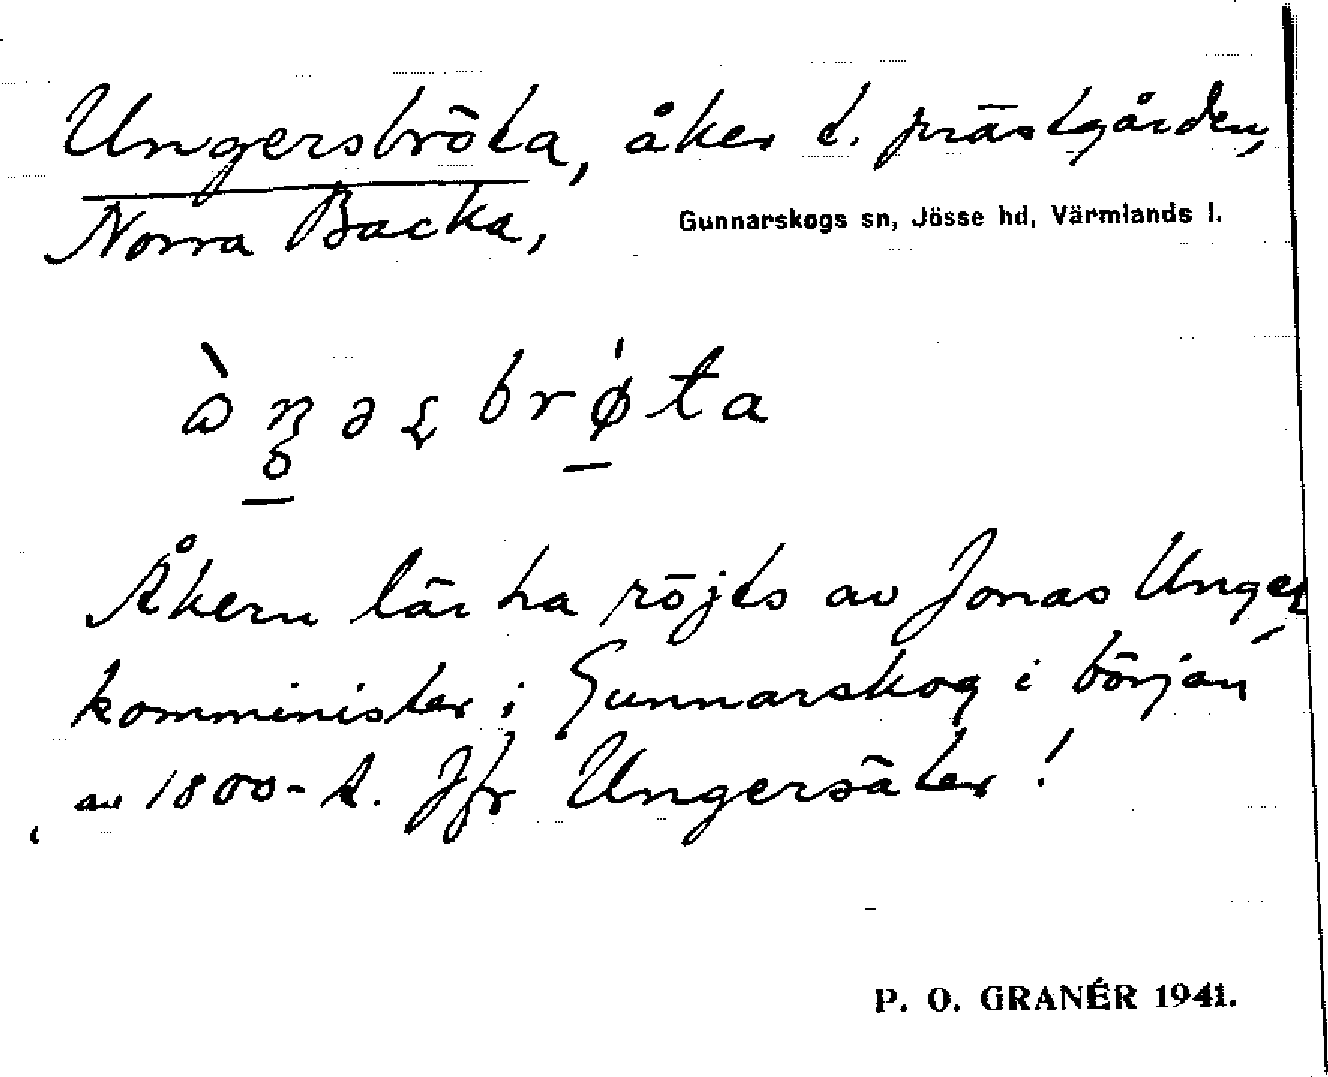 Ungersbröta, åker t. prästgården,
Norra Backa,
Gunnarskogs sn, Jösse hd, Värmlands l.
Åkern lär ha röjts av Jonas Unger,
komminister i Gunnarskog i början
av 1800-t. Jfr Ungersäter!
P. O. GRANÉR 1941.